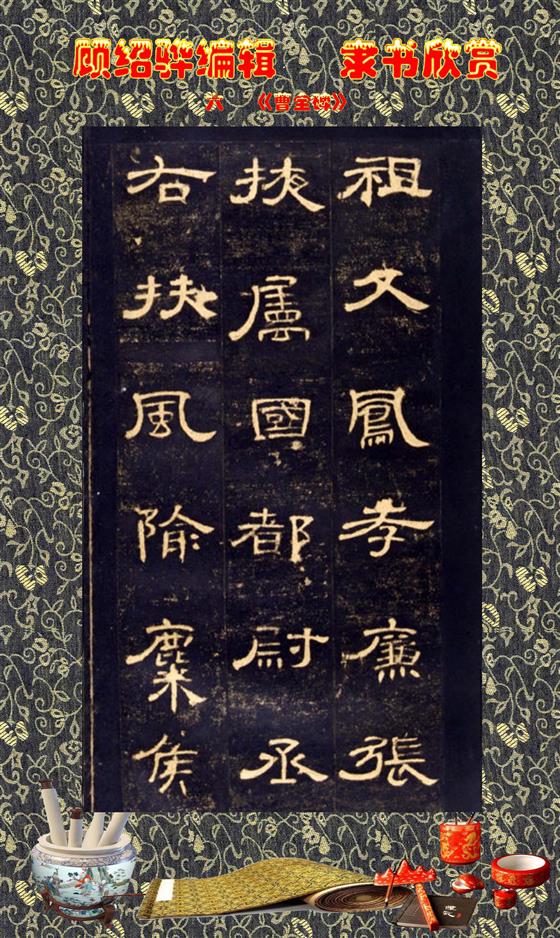 顾绍骅编辑 隶书欣赏
六 《曹全碑》
祖父鳳孝廉張
掖屬國都尉丞
右扶風隃麋侯